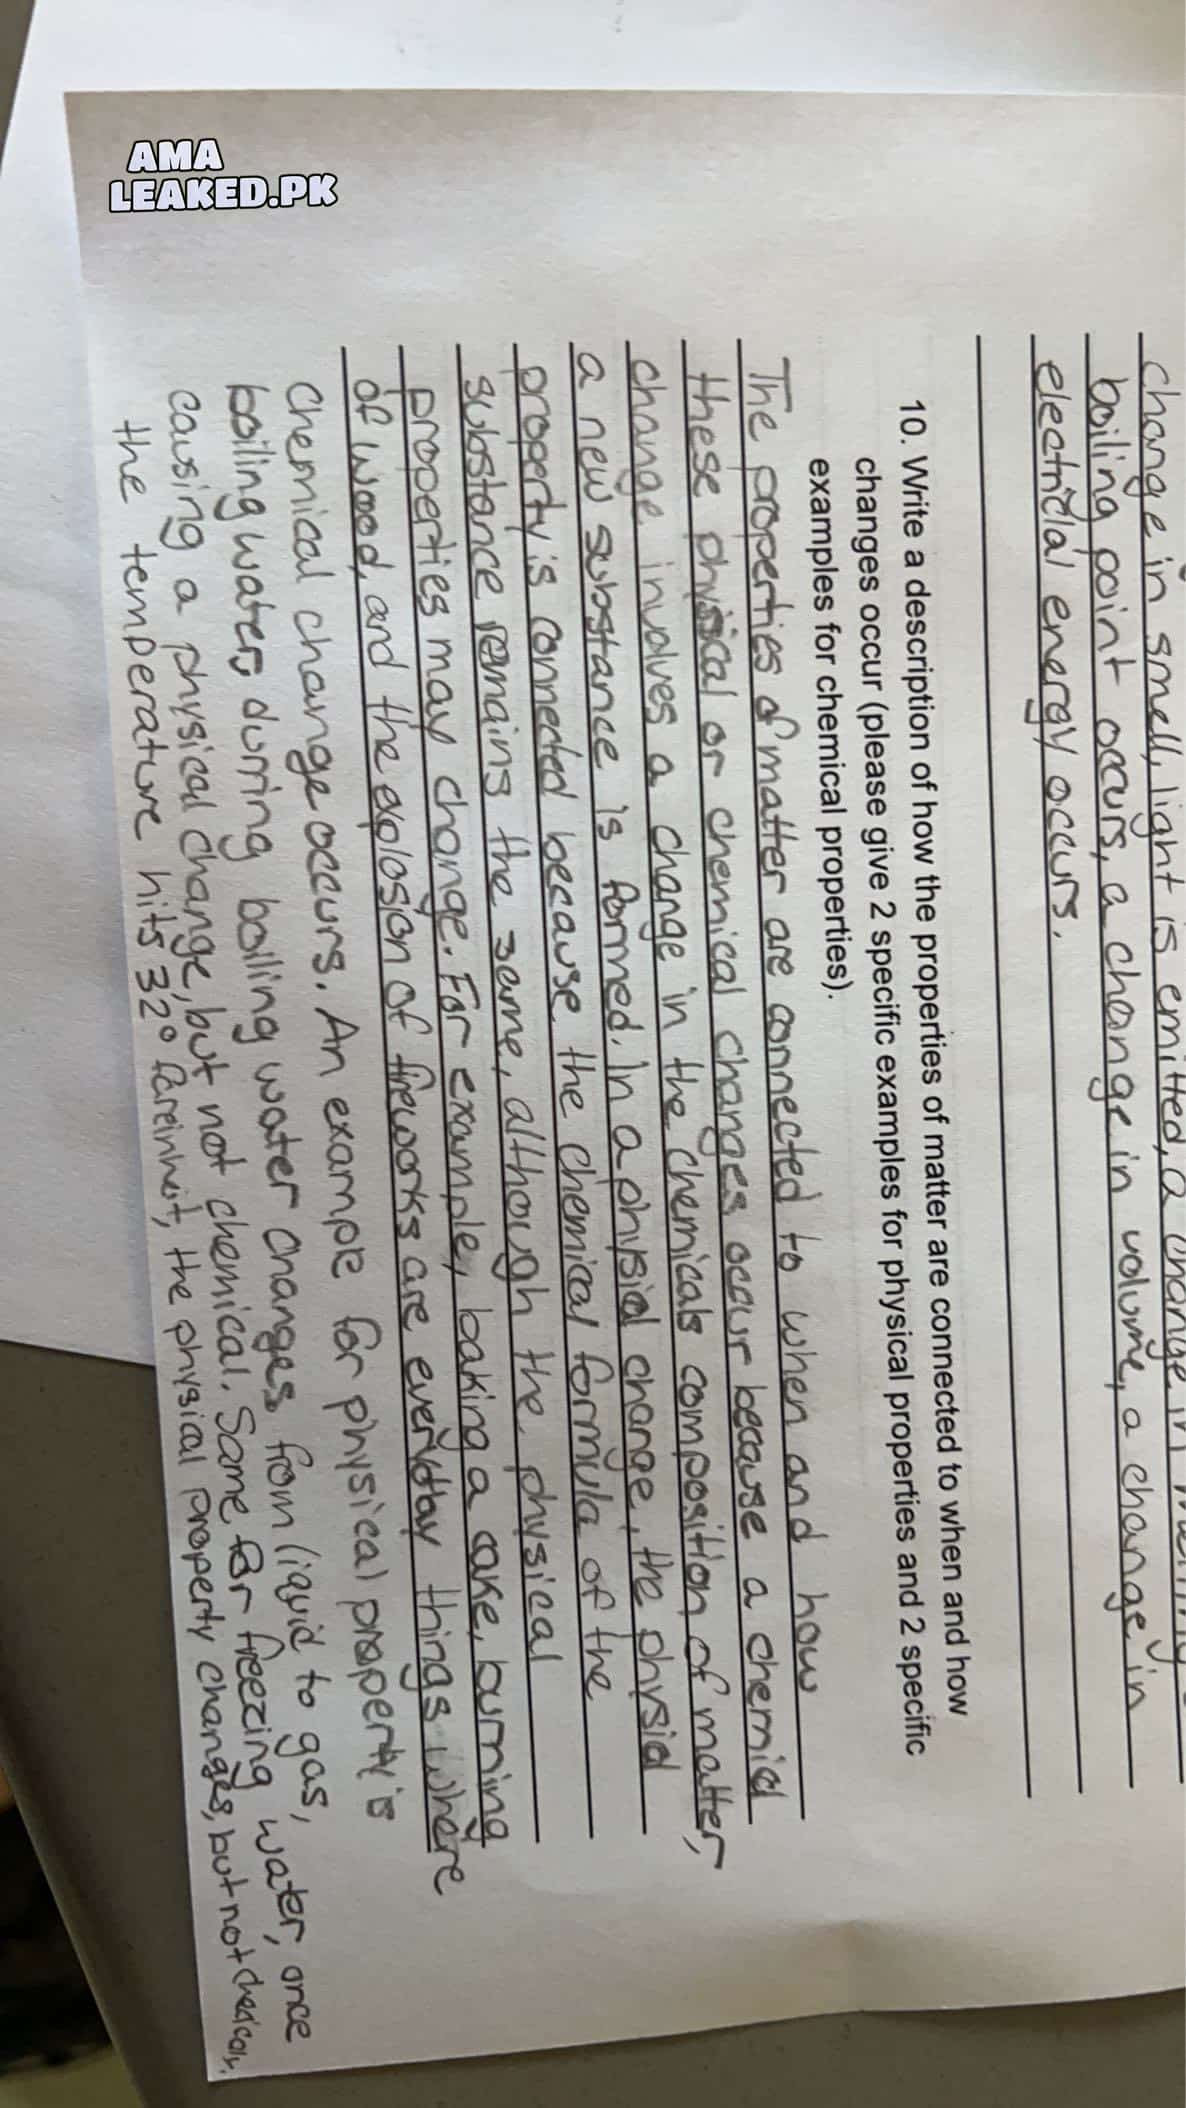 AMA
LEAKED.PK
change in smell, light is emitted, a change in
boiling point occurs, a change in volume, a change in
electricial energy occurs.
10. Write a description of how the properties of matter are connected to when and how
changes occur (please give 2 specific examples for physical properties and 2 specific
examples for chemical properties).
The properties of matter are connected to when and how
these physical or chemical changes occur because a chemicl
change involves a change in the chemicals composition of matter,
a new substance is formed. In a physicl change, the physicl
property is connected because the chemical formula of the
substance remains the same, although the physical
properties may change. For example, baking a cake, burning
of wood, and the explosion of fireworks are everyday things where
chemical change occurs. An example for physical property is
boiling water, during boiling water changes from liquid to gas,
causing a physical change, but not chemical. Same for freezing water, once
the temperature hits 32° fareinheit, the physical property changes, but not